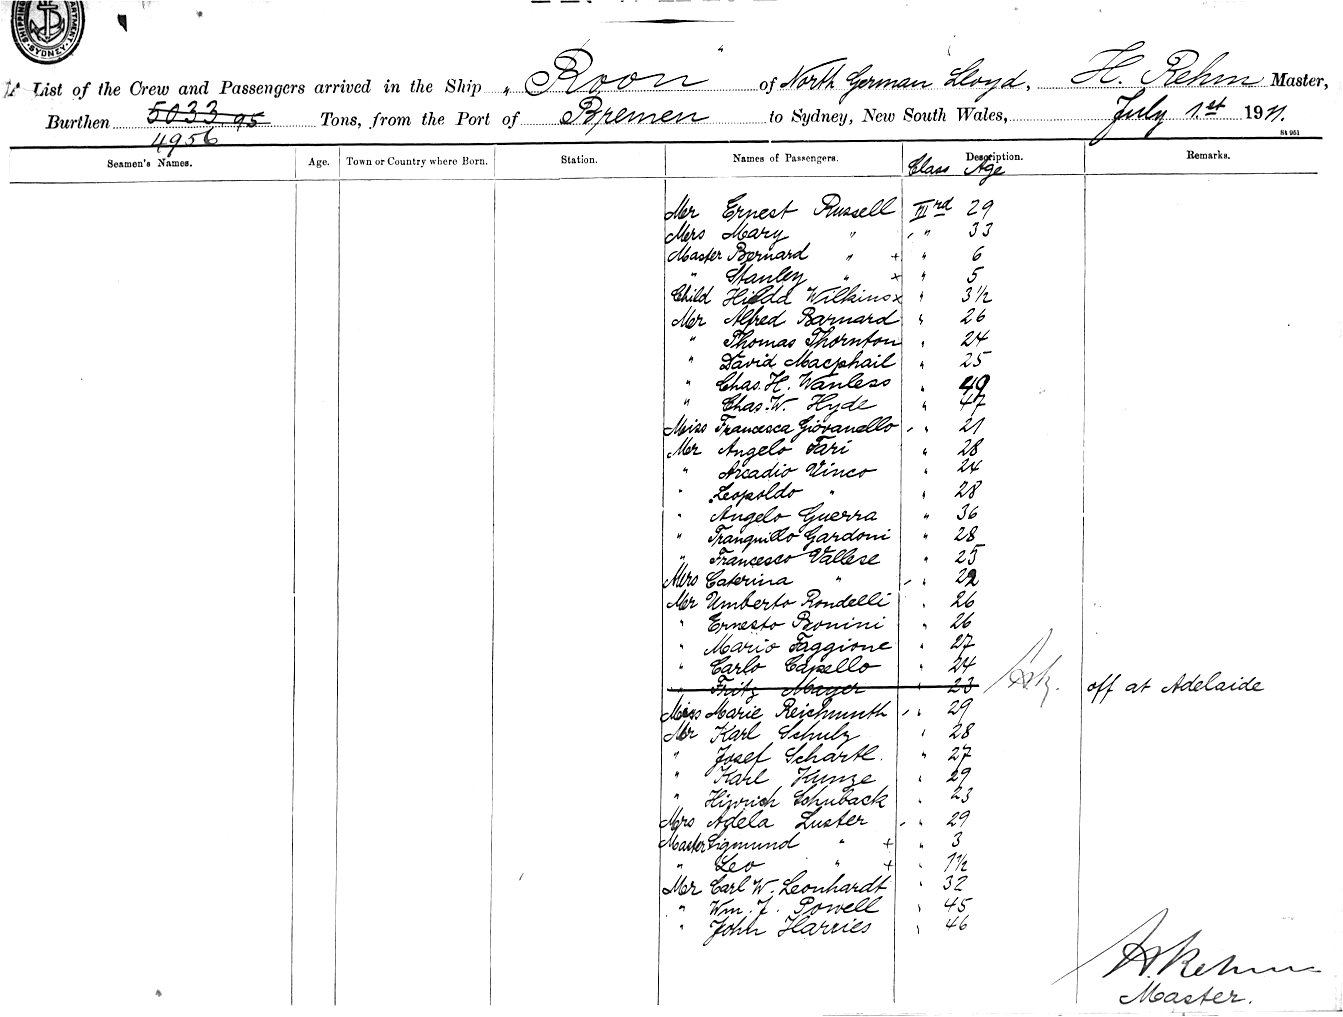 SHIPPING DEPARTMENT SYDNEY
List of the Crew and Passengers arrived in the Ship "Roon" of North German Lloyd, H. Rehm Master,
Burthen 5033 95 Tons, from the Port of Bremen to Sydney, New South Wales, July 1.st 1911.
4956
St 951
Seamen's Names. Age. Town or Country where Born. Station. Names of Passengers. Description. Remarks.
Class Age
Mr Ernest Russell IIIrd 29
Mrs Mary " " 33
Master Bernard " + " 6
" Stanley " x " 5
Child Hilda Wilkins x " 3½
Mr Alfred Barnard " 26
" Thomas Thornton " 24
" David Macphail " 25
" Chas. H. Wanless " 49
" Chas. W. Hyde " 47
Miss Francesca Giovanello " 21
Mr Angelo Fari " 28
" Arcadio Vinco " 24
" Leopoldo " " 28
" Angelo Guerra " 36
" Tranquillo Gardoni " 28
" Francesco Vallese " 25
Mrs Caterina " " 22
Mr Umberto Rondelli " 26
" Ernesto Bonini " 26
" Mario Faggione " 27
" Carlo Capello " 24
" Fritz Mayer " 23 off at Adelaide
Miss Marie Reichmuth " 29
Mr Karl Schulz " 28
" Josef Schartl. " 27
" Karl Kunze " 29
" Hinrich Schuback " 23
Mrs Adela Luster " 29
Master Sigmund " + " 3
" Leo " + " 1½
Mr Carl W. Leonhardt " 32
" Wm. J. Powell " 45
" John Harries " 46
H. Rehm
Master.